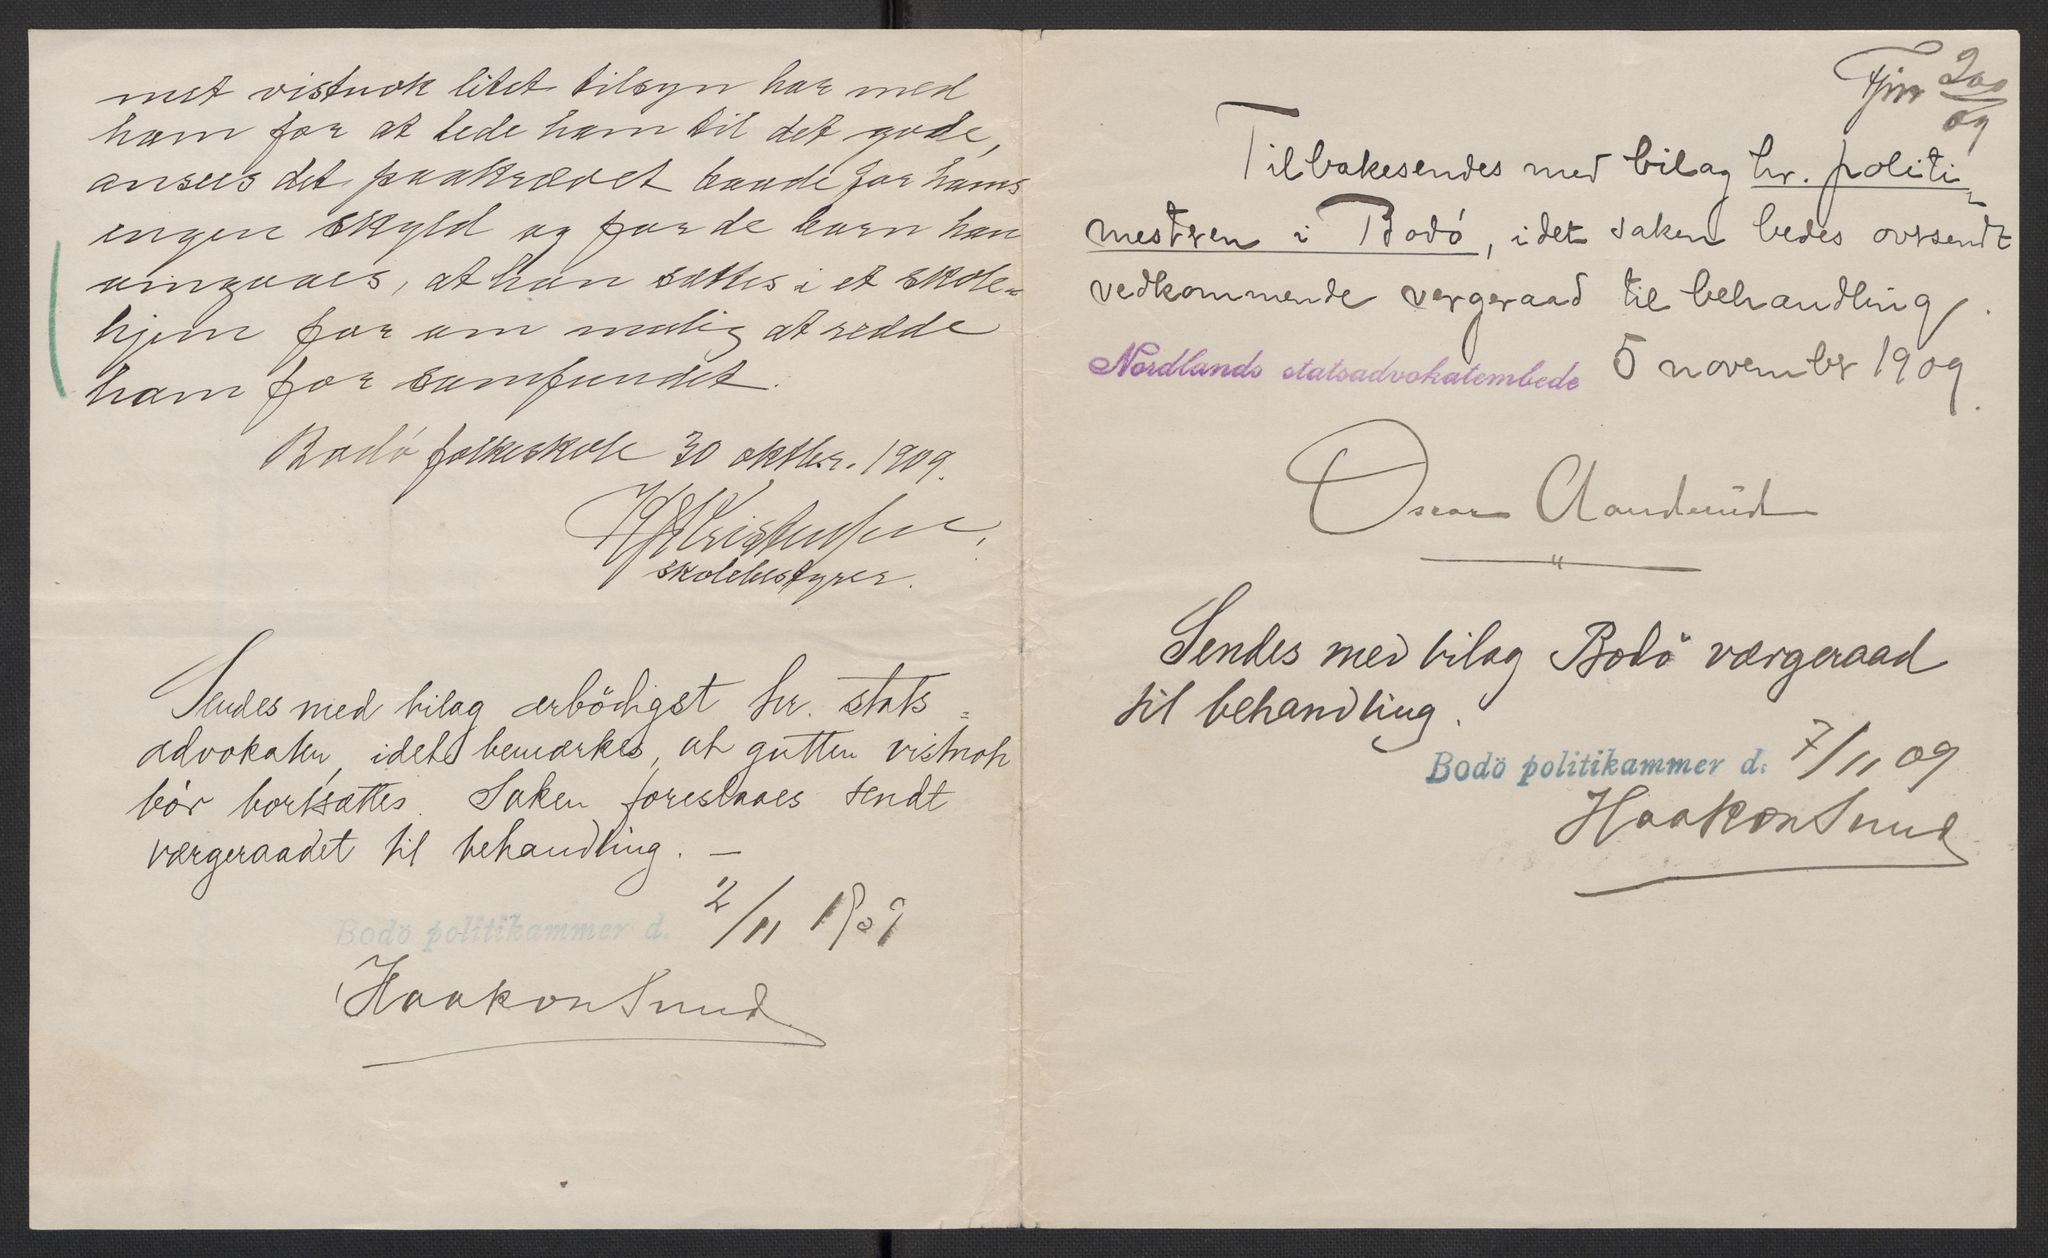 met vistnok litet tilsyn har med
ham for at lede ham til det gode,
ansees det paakrævet baade for hans
egen skyld og for de barn han
omgaaes, at han sættes i et skole=
hjem for om mulig at redde
ham for samfundet.
Bodó folkeskole 30 oktbr. 1909.
Kristensen,
skolebestyrer.
Sendes med bilag ærbödigst hr. stats=
advokaten, idet bemærkes, at gutten vistnok
bör bortsættes. Saken foreslaaes sendt
værgeraadet til behandling. —
Bodö politikammer d. 2/11 1909
Haakon Sund
200/09
Tilbakesendes med bilag hr. politi=
mesteren i Bodó, idet saken bedes oversendt
vedkommende vergeraad til behandling.
Nordlands statsadvokatembede 5 november 1909.
Oscar
Sendes med bilag Bodö værgeraad
til behandling.
Bodö politikammer d. 7/11 09
Haakon Sund